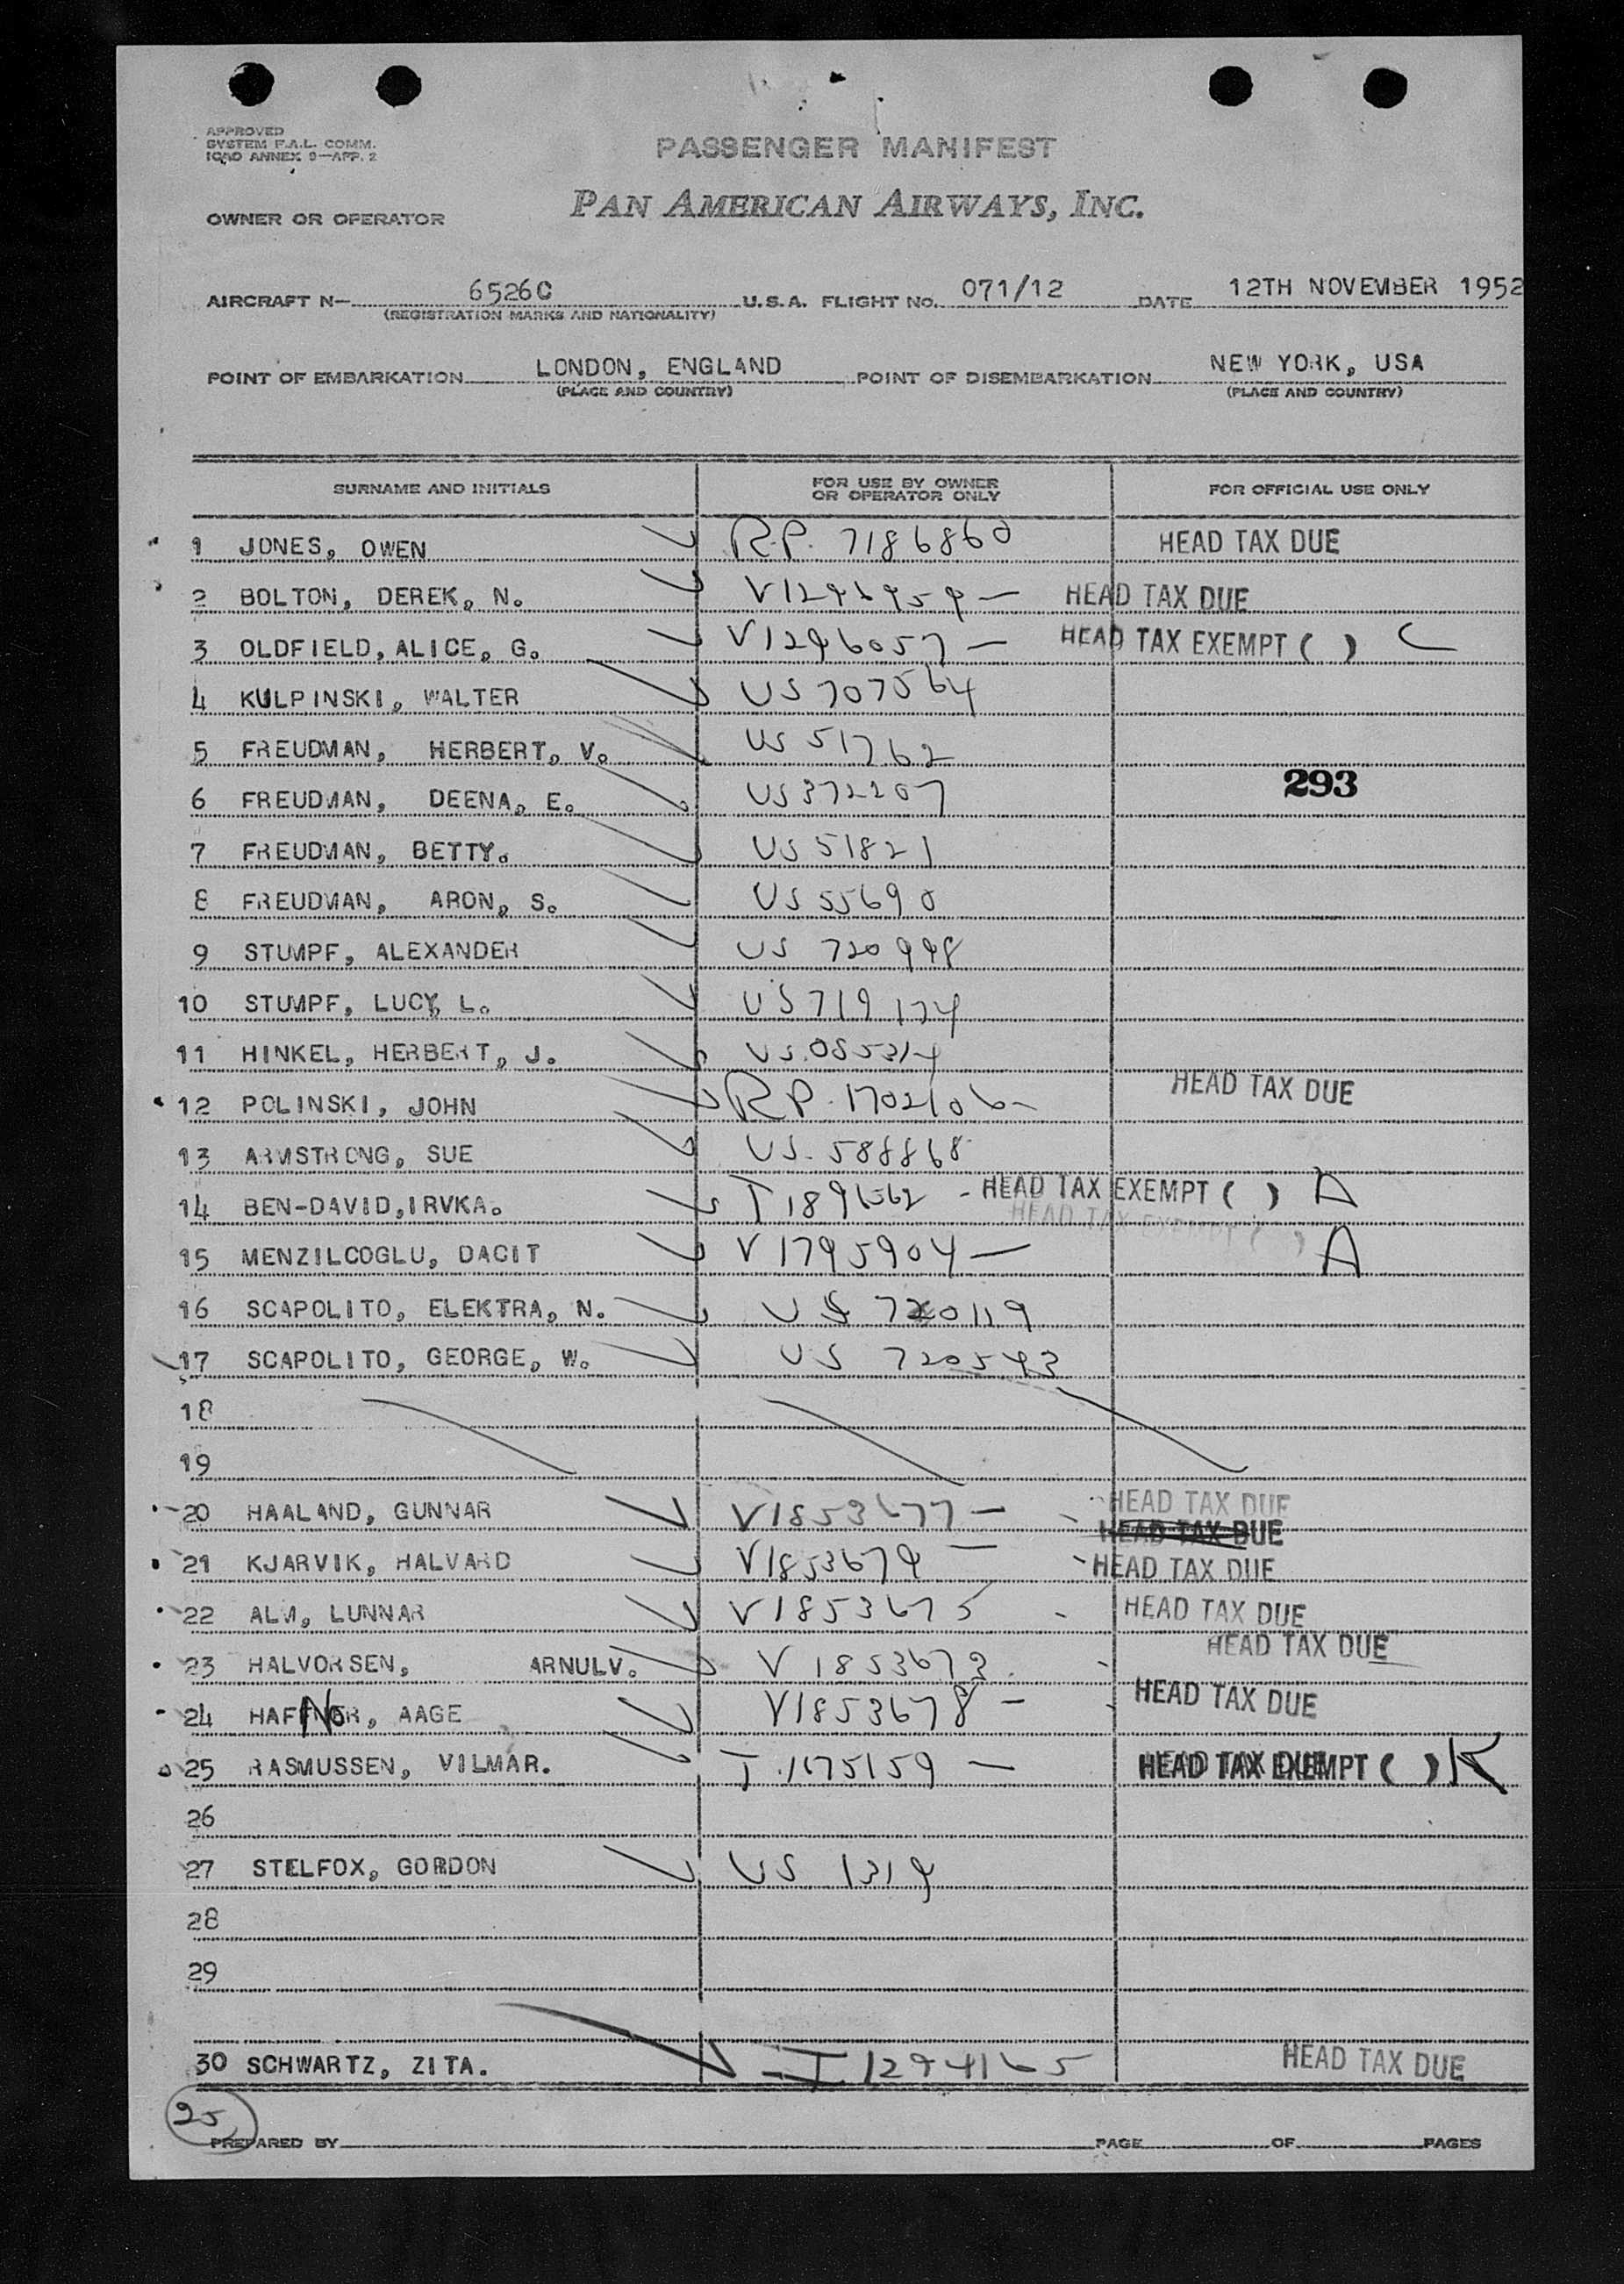 APPROVED
SYSTEM F.A.L. COMM.
ICAO ANNEX 9—APP. 2
PASSENGER MANIFEST
OWNER OR OPERATOR PAN AMERICAN AIRWAYS, INC.
AIRCRAFT N— 6526C U.S.A. FLIGHT NO. 071/12 DATE 12TH NOVEMBER 1952
(REGISTRATION MARKS AND NATIONALITY)
POINT OF EMBARKATION LONDON, ENGLAND POINT OF DISEMBARKATION NEW YORK, USA
(PLACE AND COUNTRY) (PLACE AND COUNTRY)
SURNAME AND INITIALS FOR USE BY OWNER OR OPERATOR ONLY FOR OFFICIAL USE ONLY
1 JONES, OWEN R.P. 7186860 HEAD TAX DUE
2 BOLTON, DEREK, N. HEAD TAX DUE
3 OLDFIELD, ALICE, G. V1296057 — HEAD TAX EXEMPT ( )
4 KULPINSKI, WALTER US 707564
5 FREUDMAN, HERBERT, V. US 51762
293
6 FREUDMAN, DEENA, E. US 372207
7 FREUDMAN, BETTY. US 51821
8 FREUDMAN, ARON, S. US 55690
9 STUMPF, ALEXANDER US 720998
10 STUMPF, LUCY, L. US 719174
11 HINKEL, HERBERT, J. US.085314
12 POLINSKI, JOHN RP. 1702106 HEAD TAX DUE
13 ARMSTRONG, SUE US. 588868
14 BEN-DAVID, IRVKA. HEAD TAX EXEMPT ( ) A
HEAD TAX EXEMPT ( )
15 MENZILCOGLU, DACIT V 1795904 — A
16 SCAPOLITO, ELEKTRA, N. US 720119
17 SCAPOLITO, GEORGE, W. US 720543
18
19
20 HAALAND, GUNNAR V1853677 — HEAD TAX DUE
HEAD TAX DUE
21 KJARVIK, HALVARD V1853679 — HEAD TAX DUE
22 ALM, LUNNAR V1853675 HEAD TAX DUE
HEAD TAX DUE
23 HALVORSEN, ARNULV. V 1853673
24 HAFFNER, AAGE V1853678 — HEAD TAX DUE
25 RASMUSSEN, VILMAR. T.1675159 — HEAD TAX EXEMPT ( ) K
26
27 STELFOX, GORDON US 1319
28
29
30 SCHWARTZ, ZITA. I 1294165 HEAD TAX DUE
25
PREPARED BY PAGE OF PAGES